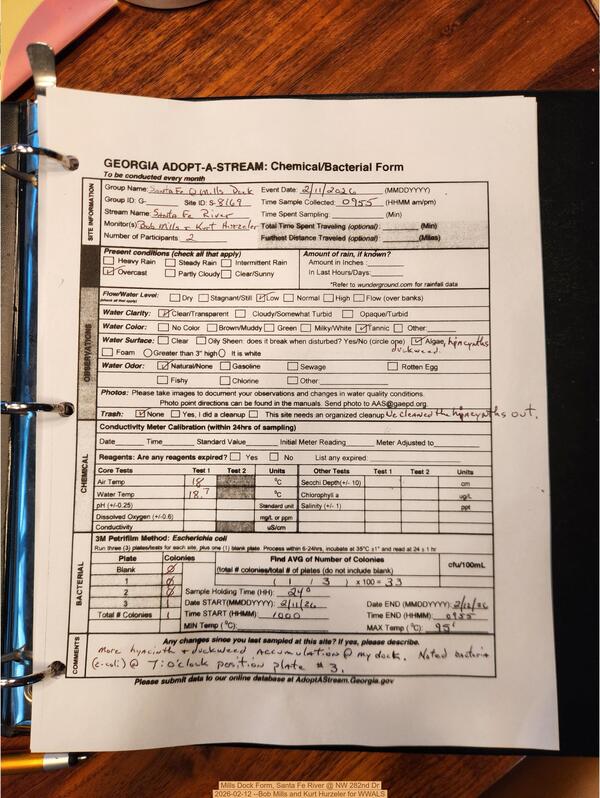 GEORGIA ADOPT-A-STREAM: Chemical/Bacterial Form
To be conducted every month
SITE INFORMATION
Group Name: Santa Fe @ Mills Dock Event Date: 2/11/2026 (MMDDYYYY)
Group ID: G- Site ID: S-8169 Time Sample Collected: 0955 (HHMM am/pm)
Stream Name: Santa Fe River Time Spent Sampling: (Min)
Monitor(s) Bob Mills + Kurt Hurzeler Total Time Spent Traveling (optional): (Min)
Number of Participants: 2 Furthest Distance Traveled (optional): (Miles)
OBSERVATIONS
Present conditions (check all that apply) Amount of rain, if known?
Heavy Rain Steady Rain Intermittent Rain Amount in Inches:
Overcast Partly Cloudy Clear/Sunny In Last Hours/Days:
*Refer to wunderground.com for rainfall data
Flow/Water Level: Dry Stagnant/Still Low Normal High Flow (over banks)
(check all that apply)
Water Clarity: Clear/Transparent Cloudy/Somewhat Turbid Opaque/Turbid
Water Color: No Color Brown/Muddy Green Milky/White Tannic Other:
Water Surface: Clear Oily Sheen: does it break when disturbed? Yes/No (circle one) Algae, hyncynths
duckweed.
Foam Greater than 3" high It is white
Water Odor: Natural/None Gasoline Sewage Rotten Egg
Fishy Chlorine Other:
Photos: Please take images to document your observations and changes in water quality conditions.
Photo point directions can be found in the manuals. Send photo to AAS@gaepd.org.
Trash: None Yes, I did a cleanup This site needs an organized cleanup We cleaned the hyncynths out.
CHEMICAL
Conductivity Meter Calibration (within 24hrs of sampling)
Date Time Standard Value Initial Meter Reading Meter Adjusted to
Reagents: Are any reagents expired? Yes No List any expired:
Core Tests Test 1 Test 2 Units Other Tests Test 1 Test 2 Units
Air Temp 18 °C Secchi Depth(+/- 10) cm
Water Temp 18.7 °C Chlorophyll a ug/L
pH (+/-0.25) Standard unit Salinity (+/- 1) ppt
Dissolved Oxygen (+/-0.6) mg/L or ppm
Conductivity uS/cm
BACTERIAL
3M Petrifilm Method: Escherichia coli
Run three (3) plates/tests for each site, plus one (1) blank plate. Process within 6-24hrs, incubate at 35°C ±1° and read at 24 ± 1 hr
Plate Colonies Find AVG of Number of Colonies cfu/100mL
Blank 0 (total # colonies/total # of plates (do not include blank)
1 0 ( 1 / 3 ) x 100 = 33
2 0 Sample Holding Time (HH): 24°
3 1 Date START(MMDDYYYY): 2/11/26 Date END (MMDDYYYY): 2/12/26
Total # Colonies 1 Time START (HHMM): 1000 Time END (HHMM): 0955
MIN Temp (°C): MAX Temp (°C): 95°
COMMENTS
Any changes since you last sampled at this site? If yes, please describe.
More hyncinth + duckweed accumulation @ my dock. Noted bacteria
(e-coli) @ 7:o'clock position plate # 3.
Please submit data to our online database at AdoptAStream.Georgia.gov
Mills Dock Form, Santa Fe River @ NW 282nd Dr
2026-02-12 --Bob Mills and Kurt Hurzeler for WWALS